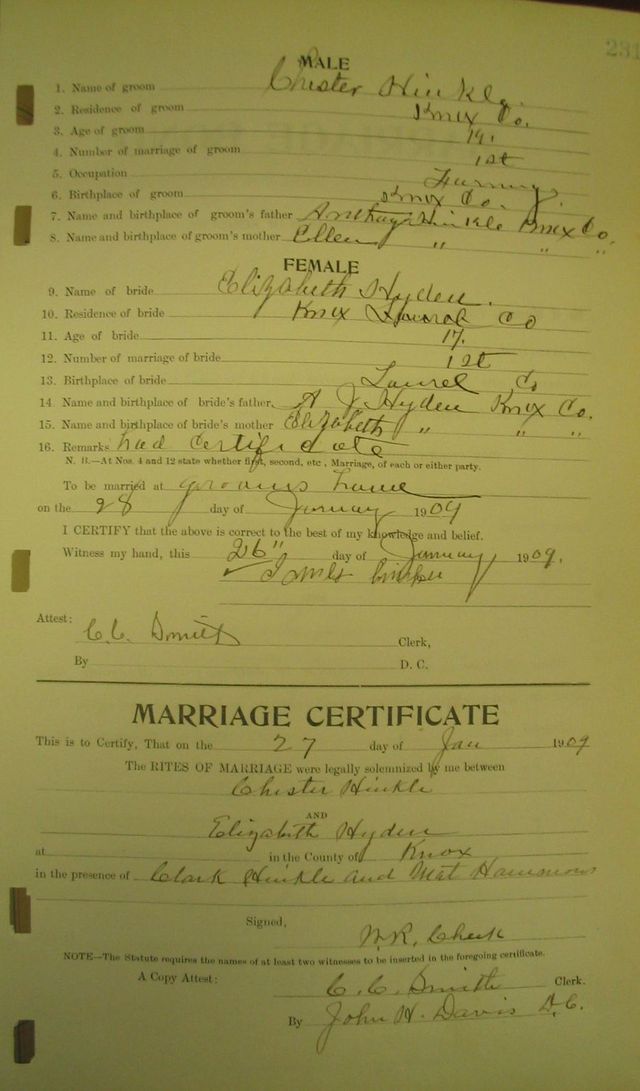 231
MALE
1. Name of groom Chester Hinkle.
2. Residence of groom Knox Co.
3. Age of groom 19.
4. Number of marriage of groom 1st
5. Occupation Farming.
6. Birthplace of groom Knox Co.
7. Name and birthplace of groom's father Anthony Hinkle Knox Co.
8. Name and birthplace of groom's mother Ellen " " "
FEMALE
9. Name of bride Elizabeth Hyden.
10. Residence of bride Knox Laurel Co
11. Age of bride 17.
12. Number of marriage of bride 1st
13. Birthplace of bride Laurel Co
14. Name and birthplace of bride's father, A J Hyden Knox Co.
15. Name and birthplace of bride's mother Elizabeth " " "
16. Remarks had certificate
N. B.—At Nos. 4 and 12 state whether first, second, etc., Marriage, of each or either party.
To be married at grooms home
on the 28 day of January 1909
I CERTIFY that the above is correct to the best of my knowledge and belief.
Witness my hand, this 26" day of January 1909.
Attest: C.C. Smith Clerk,
By D. C.
MARRIAGE CERTIFICATE
This is to Certify, That on the 27 day of Jan 1909
The RITES OF MARRIAGE were legally solemnized by me between
Chester Hinkle
AND
Elizabeth Hyden
at in the County of Knox
in the presence of Clark Hinkle and Mat Hammons
Signed,
W.R. Cheek
NOTE—The Statute requires the names of at least two witnesses to be inserted in the foregoing certificate.
A Copy Attest: C.C. Smith Clerk.
By John H. Davis D.C.